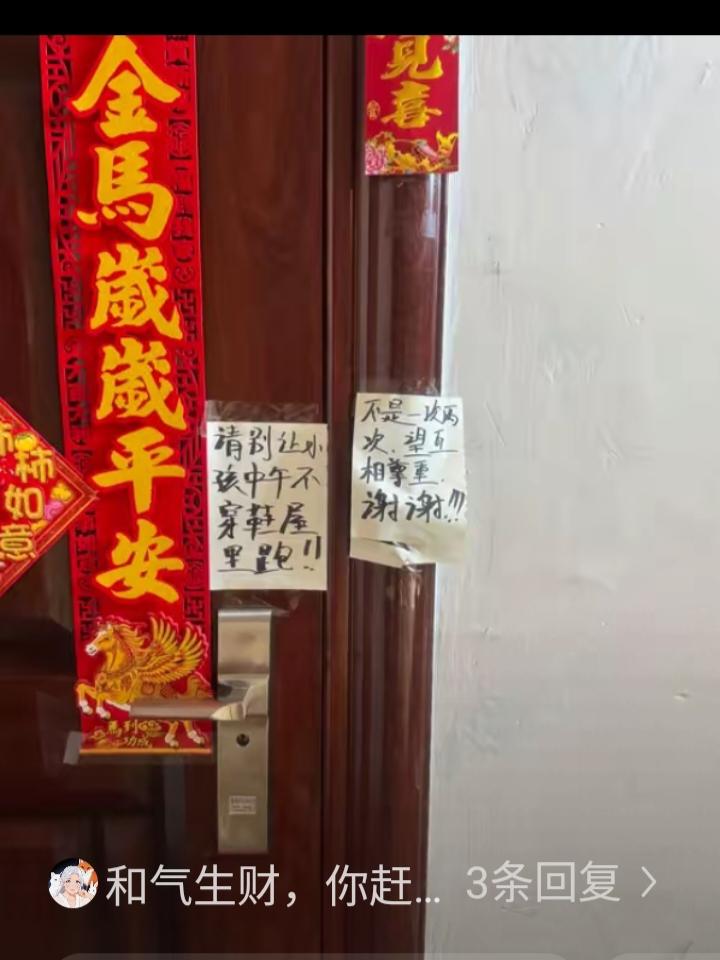 金馬歲歲平安
見喜
柿柿如意
馬到
功成
请别让小
孩中午不
穿鞋屋
里跑!!
不是一次两
次.望互
相尊重.
谢谢!!!
和气生财，你赶... 3条回复